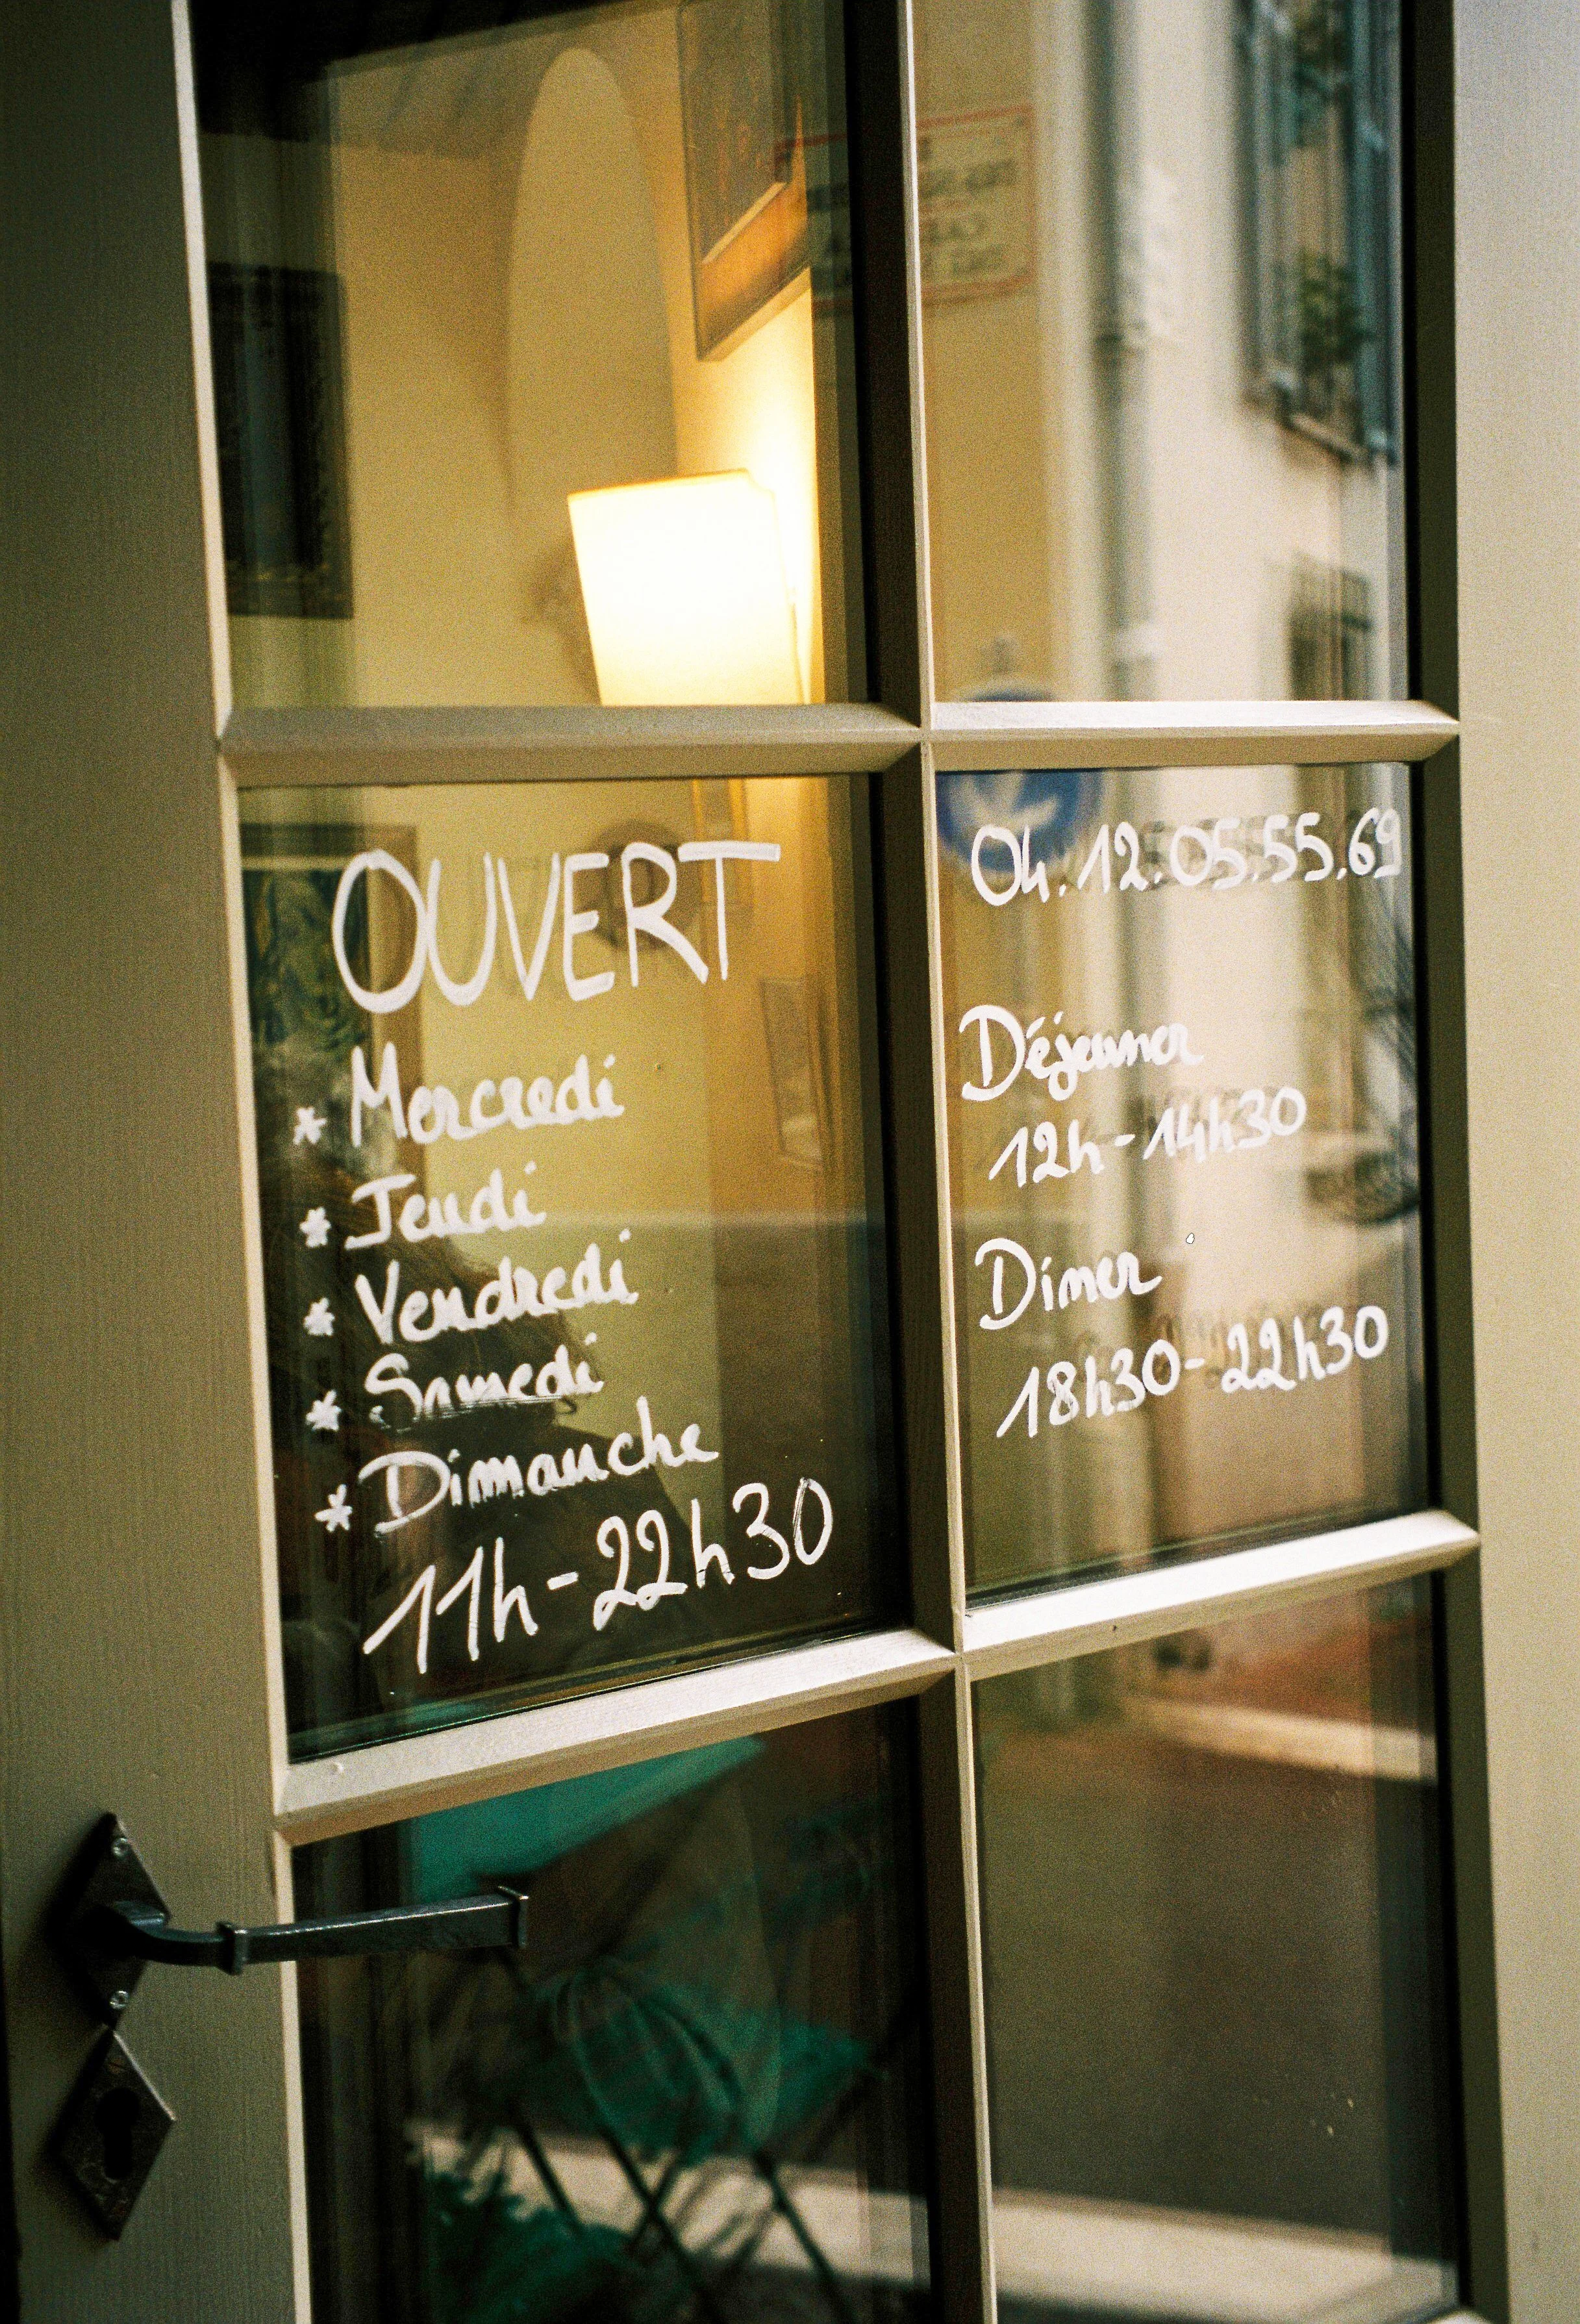 OUVERT
* Mercredi
* Jeudi
* Vendredi
* Samedi
* Dimanche
11h-22h30
04.12.05.55.69
Déjeuner
12h-14h30
Dîner
18h30-22h30